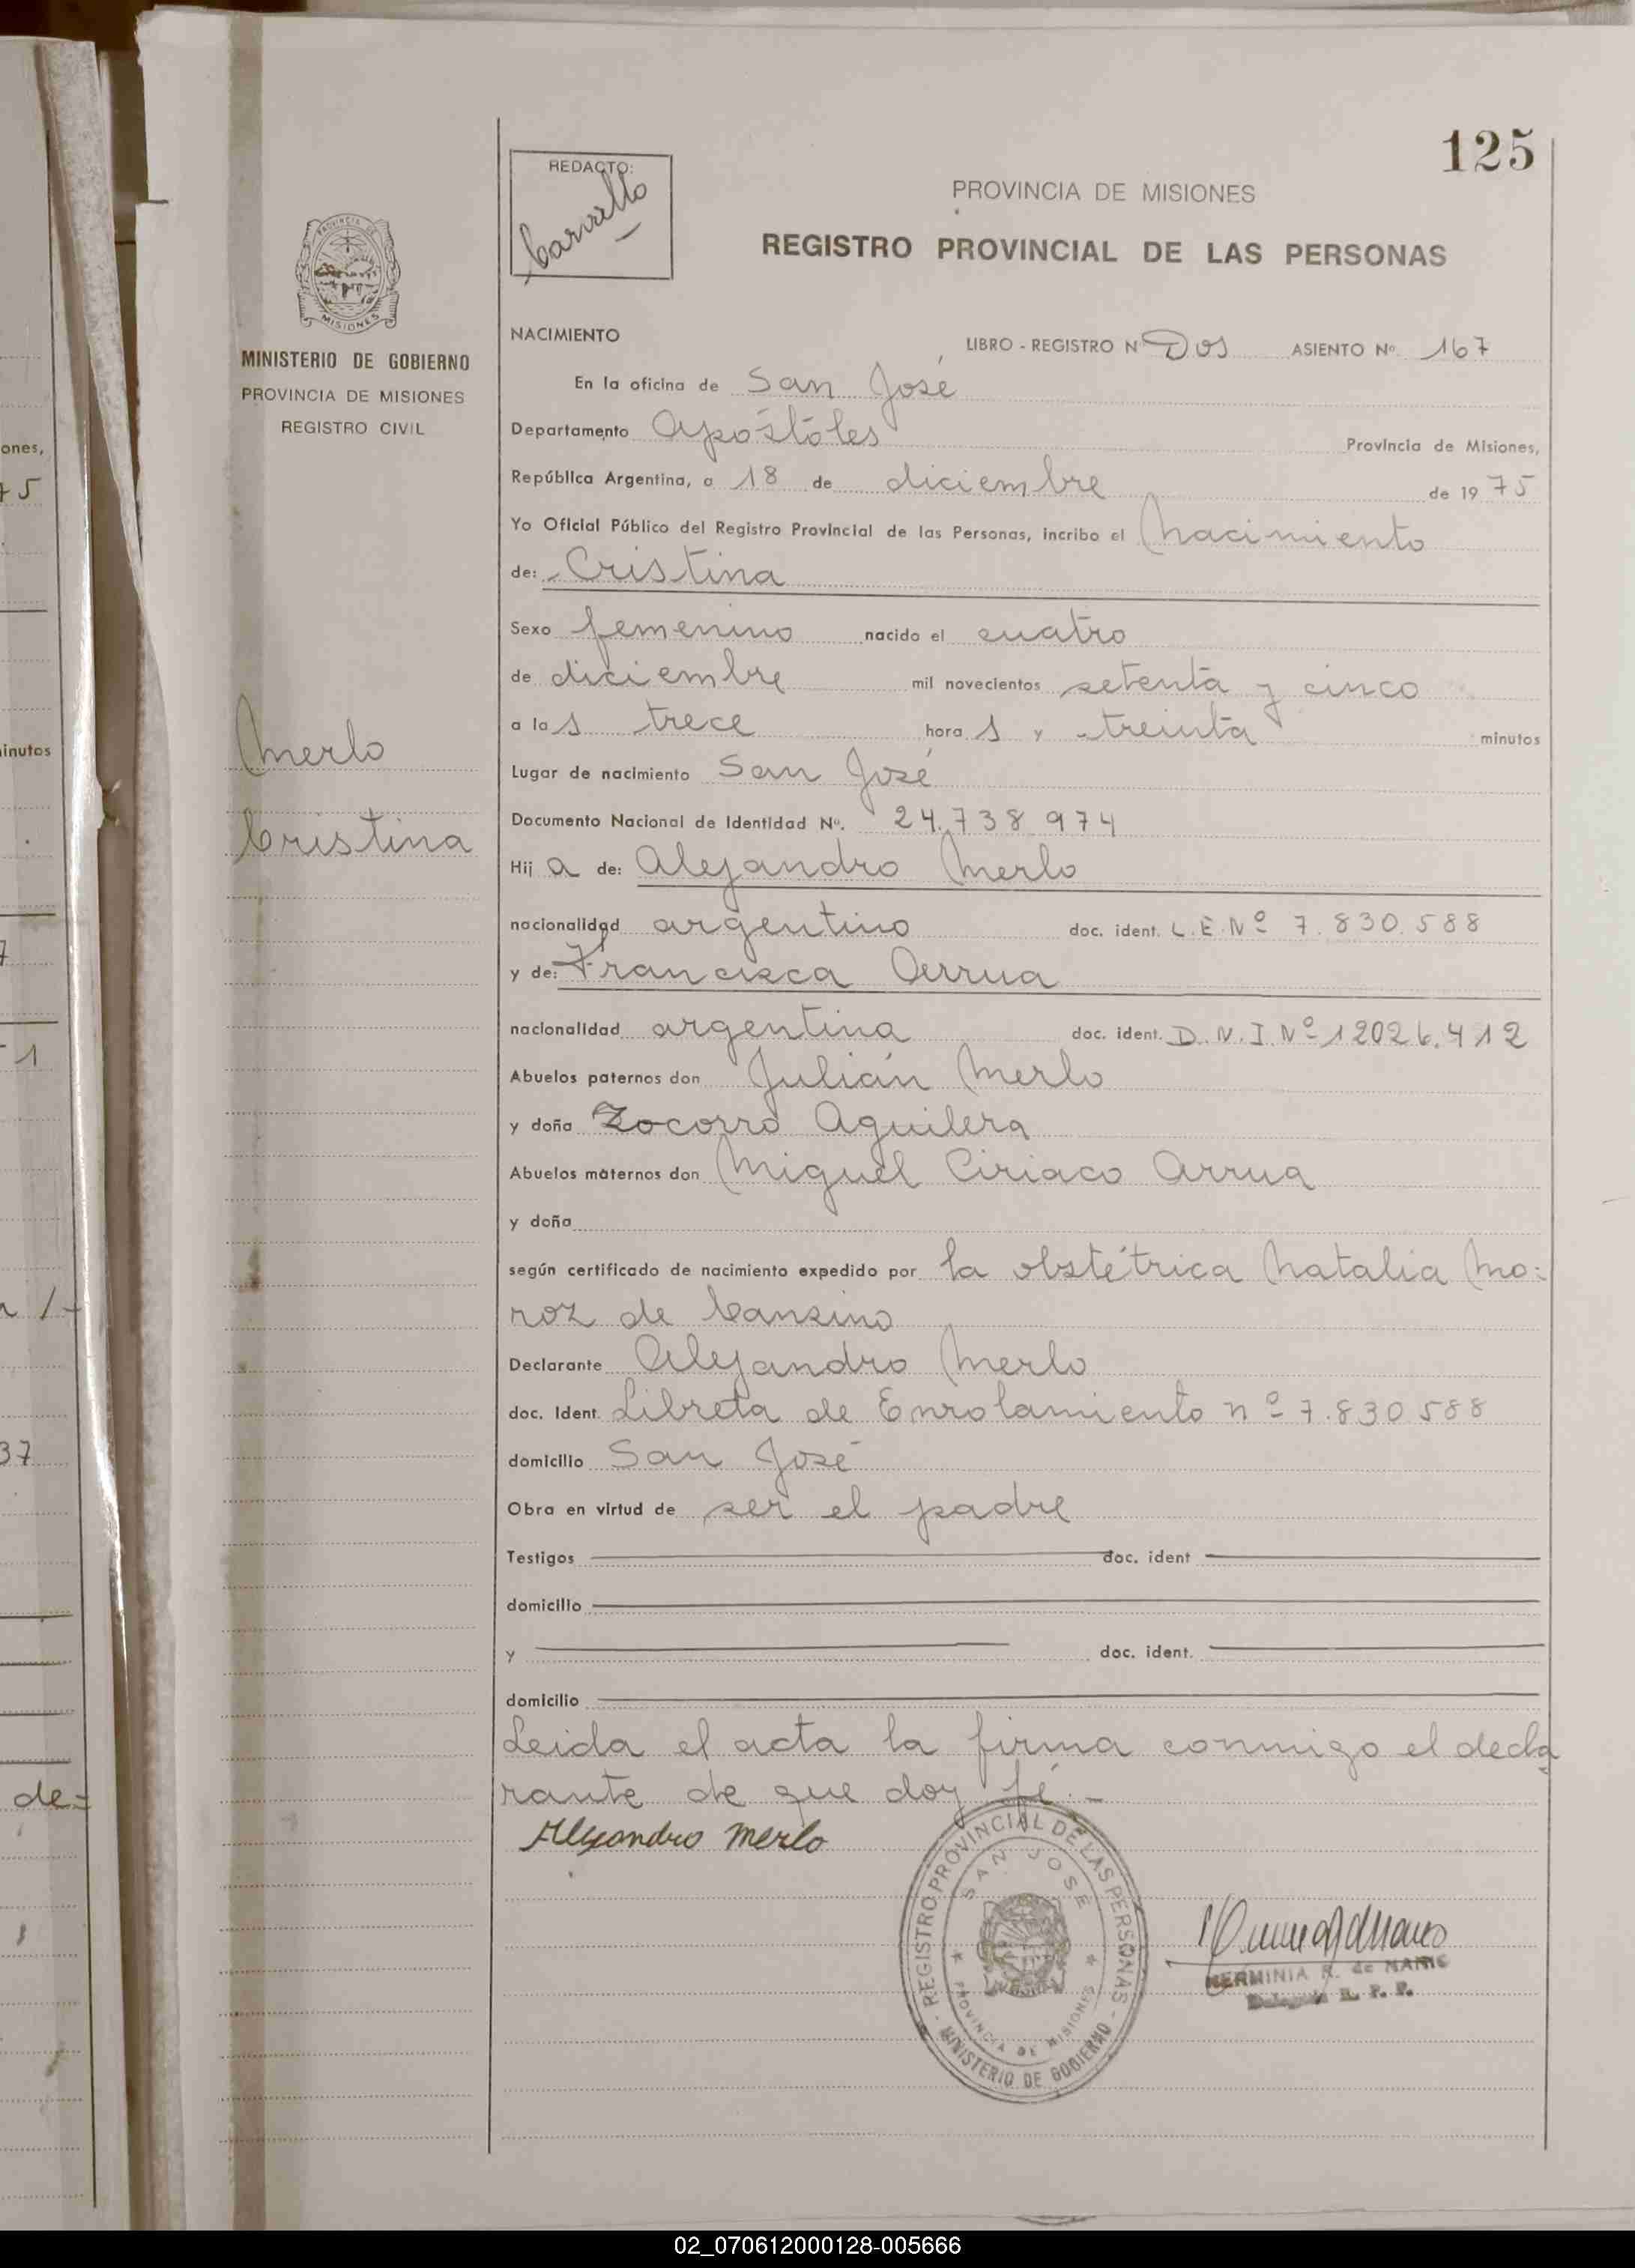 125
REDACTO:
Carvallo
PROVINCIA DE MISIONES
REGISTRO PROVINCIAL DE LAS PERSONAS
PROVINCIA DE
MISIONES
MINISTERIO DE GOBIERNO
PROVINCIA DE MISIONES
REGISTRO CIVIL
Merlo
Cristina
NACIMIENTO
LIBRO - REGISTRO N Dos ASIENTO Nº 167
En la oficina de San José
Departamento Apóstoles Provincia de Misiones,
República Argentina, a 18 de diciembre de 19 75
Yo Oficial Público del Registro Provincial de las Personas, incribo el Nacimiento
de: Cristina
Sexo femenino nacido el cuatro
de diciembre mil novecientos setenta y cinco
a las trece horas y treinta minutos
Lugar de nacimiento San José
Documento Nacional de Identidad Nº. 24.738.974
Hij a de: Alejandro Merlo
nacionalidad argentino doc. ident. L.E.Nº 7.830.588
y de: Francisca Arrua
nacionalidad argentina doc. ident. D.N.I.Nº 12026.412
Abuelos paternos don Julián Merlo
y doña Zocorro Aguilera
Abuelos maternos don Miguel Ciriaco Arrua
y doña
según certificado de nacimiento expedido por la obstétrica Natalia Mo:
roz de Cansino
Declarante Alejandro Merlo
doc. Ident. Libreta de Enrolamiento nº 7.830588
domicilio San José
Obra en virtud de ser el padre
Testigos doc. ident
domicilio
y doc. ident.
domicilio
Leida el acta la firma conmigo el decla
rante de que doy fé.-
Alejandro Merlo
REGISTRO PROVINCIAL DE LAS PERSONAS - MINISTERIO DE GOBIERNO -
SAN JOSE
PROVINCIA DE MISIONES
HERMINIA R. de
R. P. P.
ones,
75
inutos
7
1
37
de=
02_070612000128-005666